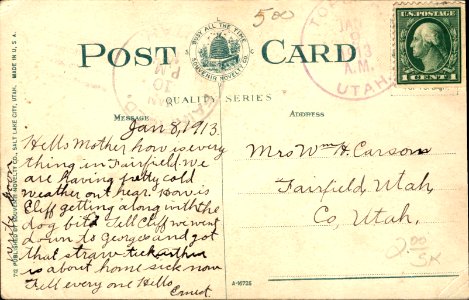 5.00
BUSY ALL THE TIME
SOUVENIR NOVELTY CO.
POST CARD
QUALITY SERIES
TO
JAN
9
A.M.
UTAH
U.S. POSTAGE
1 CENT 1
JAN
10
PM
MESSAGE
ADDRESS
Jan 8, 1913.
Hello Mother how is every
thing in Fairfield. we
are having pretty cold
weather out hear. how is
Cliff getting along with the
dog bite Tell Cliff we went
down to Georges and got
that straw tick arthur
is about home sick now
Tell every one Hello
Ernest.
write soon
Mrs Wm H. Carson
Fairfield, Utah
Co, Utah.
2.00
A-16725
PUBLISHED BY SOUVENIR NOVELTY CO., SALT LAKE CITY, UTAH. MADE IN U.S.A.